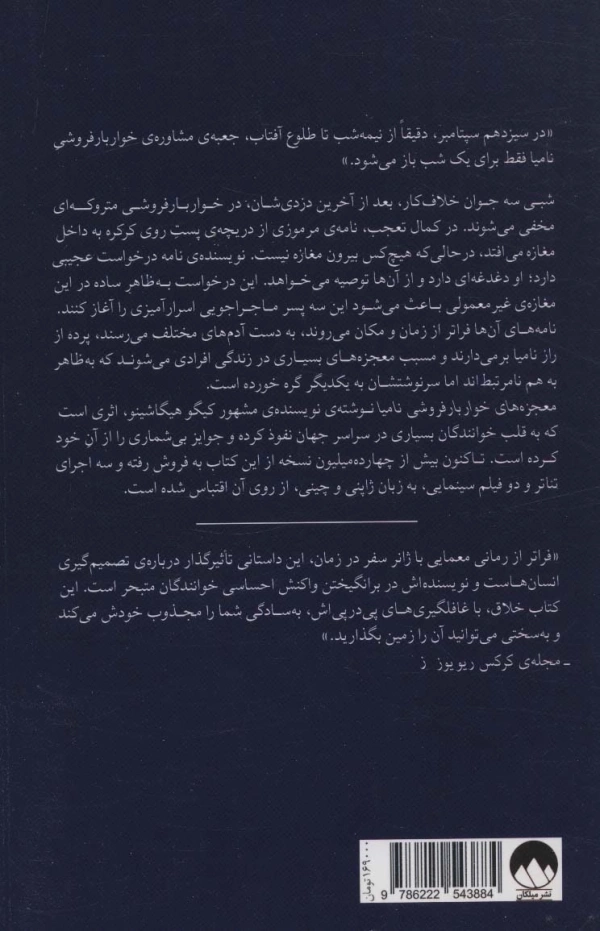 «در سیزدهم سپتامبر، دقیقاً از نیمه‌شب تا طلوع آفتاب، جعبه‌ی مشاوره‌ی خواربارفروشیِ
نامیا فقط برای یک شب باز می‌شود.»
شبی سه جوان خلاف‌کار، بعد از آخرین دزدی‌شان، در خواربارفروشی متروکه‌ای
مخفی می‌شوند. در کمال تعجب، نامه‌ی مرموزی از دریچه‌ی پستِ روی کرکره به داخل
مغازه می‌افتد، درحالی‌که هیچ‌کس بیرون مغازه نیست. نویسنده‌ی نامه درخواست عجیبی
دارد؛ او دغدغه‌ای دارد و از آن‌ها توصیه می‌خواهد. این درخواست به‌ظاهر ساده در این
مغازه‌ی غیرمعمولی باعث می‌شود این سه پسر ماجراجویی اسرارآمیزی را آغاز کنند.
نامه‌های آن‌ها فراتر از زمان و مکان می‌روند، به دست آدم‌های مختلف می‌رسند، پرده از
راز نامیا برمی‌دارند و مسبب معجزه‌های بسیاری در زندگی افرادی می‌شوند که به‌ظاهر
به هم نامرتبط‌اند اما سرنوشتشان به یکدیگر گره خورده است.
معجزه‌های خواربارفروشی نامیا نوشته‌ی نویسنده‌ی مشهور کیگو هیگاشینو، اثری است
که به قلب خوانندگان بسیاری در سراسر جهان نفوذ کرده و جوایز بی‌شماری را از آنِ خود
کرده است. تاکنون بیش از چهارده‌میلیون نسخه از این کتاب به فروش رفته و سه اجرای
تئاتر و دو فیلم سینمایی، به زبان ژاپنی و چینی، از روی آن اقتباس شده است.
«فراتر از رمانی معمایی با ژانر سفر در زمان، این داستانی تأثیرگذار درباره‌ی تصمیم‌گیری
انسان‌هاست و نویسنده‌اش در برانگیختن واکنش احساسی خوانندگان متبحر است. این
کتاب خلاق، با غافلگیری‌های پی‌درپی‌اش، به‌سادگی شما را مجذوب خودش می‌کند
و به‌سختی می‌توانید آن را زمین بگذارید.»
ـ مجله‌ی کرکس ریویوز ز
۱۶۹۰۰۰ تومان
9 786222 543884
نشر میلکان